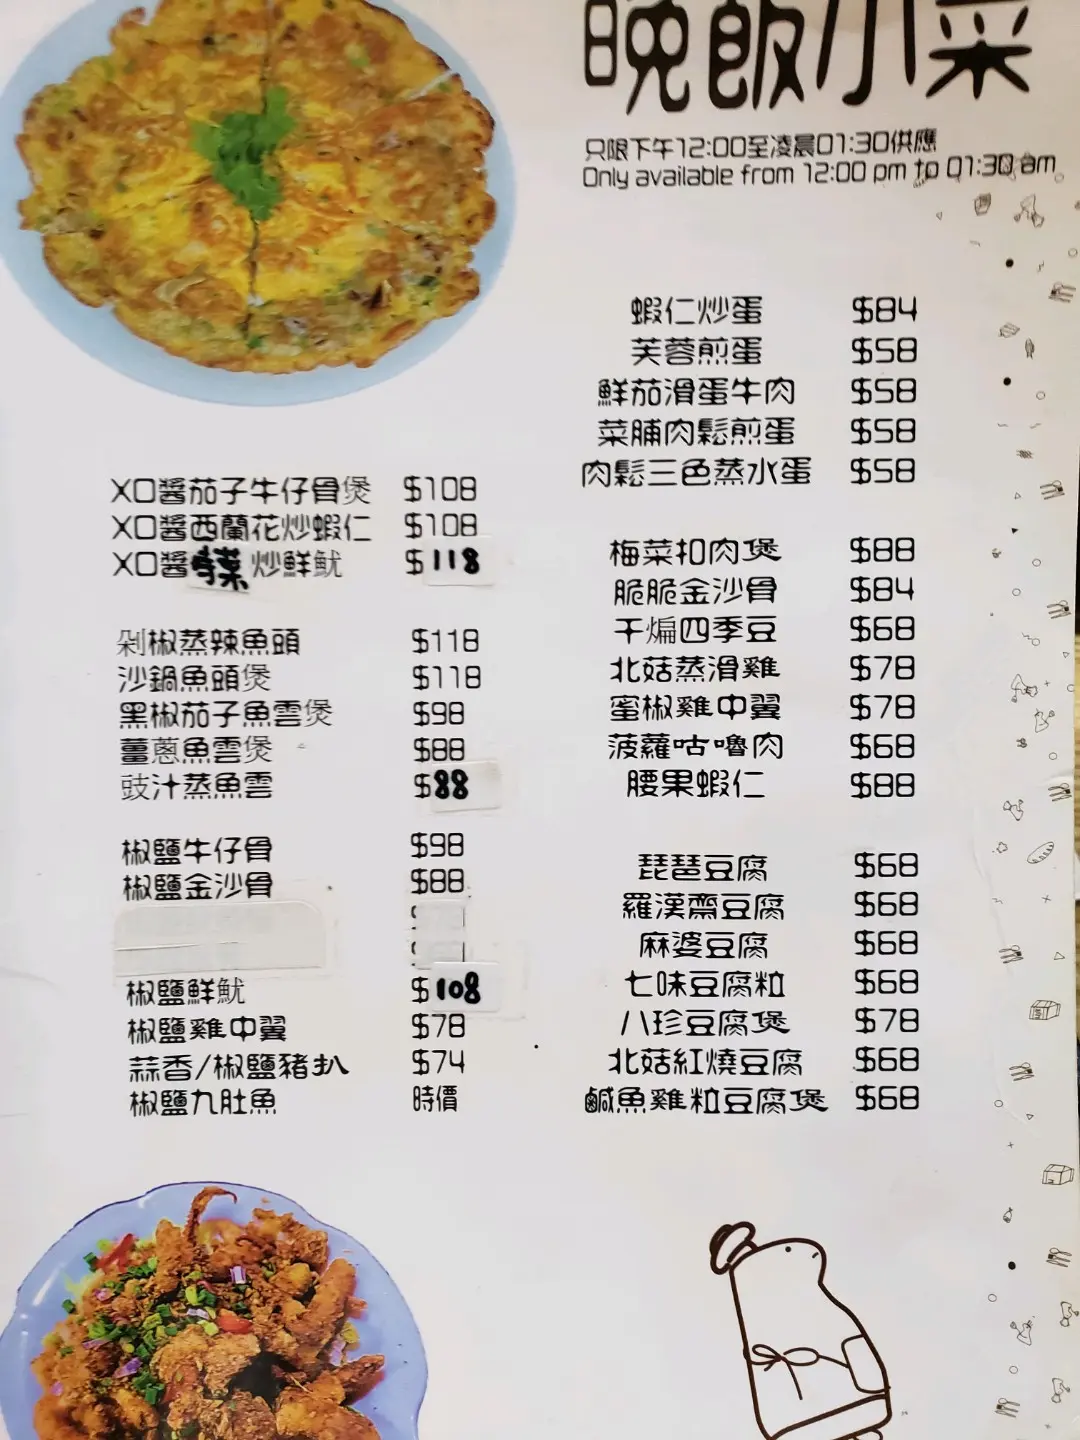 晚飯小菜
只限下午12:00至凌晨01:30供應
Only available from 12:00 pm to 01:30 am
蝦仁炒蛋 $84
芙蓉煎蛋 $58
鮮茄滑蛋牛肉 $58
菜脯肉鬆煎蛋 $58
肉鬆三色蒸水蛋 $58
梅菜扣肉煲 $88
脆脆金沙骨 $84
干煸四季豆 $68
北菇蒸滑雞 $78
蜜椒雞中翼 $78
菠蘿咕嚕肉 $68
腰果蝦仁 $88
琵琶豆腐 $68
羅漢齋豆腐 $68
麻婆豆腐 $68
七味豆腐粒 $68
八珍豆腐煲 $78
北菇紅燒豆腐 $68
鹹魚雞粒豆腐煲 $68
XO醬茄子牛仔骨煲 $108
XO醬西蘭花炒蝦仁 $108
XO醬 炒鮮魷 $118
剁椒蒸辣魚頭 $118
沙鍋魚頭煲 $118
黑椒茄子魚雲煲 $98
薑蔥魚雲煲 $88
豉汁蒸魚雲 $88
椒鹽牛仔骨 $98
椒鹽金沙骨 $88
椒鹽鮮魷 $108
椒鹽雞中翼 $78
蒜香/椒鹽豬扒 $74
椒鹽九肚魚 時價